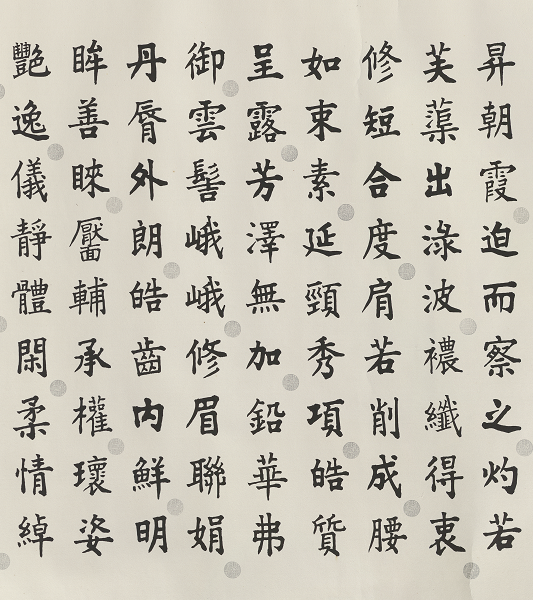 昇朝霞迫而察之灼若
芙蕖出淥波襛纖得衷
修短合度肩若削成腰
如束素延頸秀項皓質
呈露芳澤無加鉛華弗
御雲髻峨峨修眉聯娟
丹脣外朗皓齒內鮮明
眸善睞靨輔承權瓌姿
艷逸儀靜體閑柔情綽